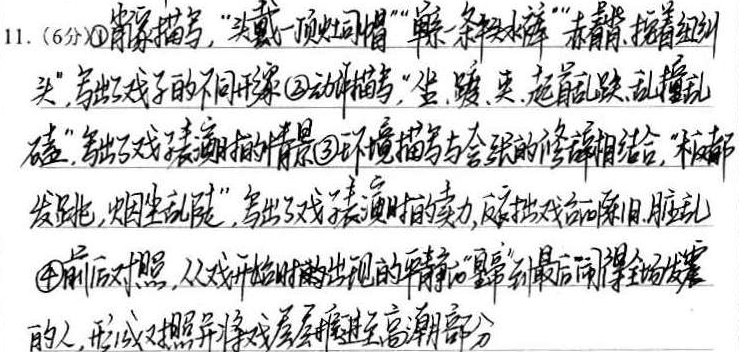 11.(6分)①肖象描写,"头戴一顶灶司帽""单系一条头水裤""赤着背,挽着纽纠
头",写出了戏子的不同形象②动作描写,"坐、踱、夹、起着乱跌、乱撞乱
磕",写出了戏子表演时的情景③环境描写与夸张的修辞相结合,"木板都
发跳,烟尘乱陡",写出了戏子表演时的卖力,反衬出戏台的陈旧、脏乱
④前后对照,从戏开始时的出现的平静的"垩帚"到最后闹得全场发震
的人,形成对照并将戏层层推进至高潮部分